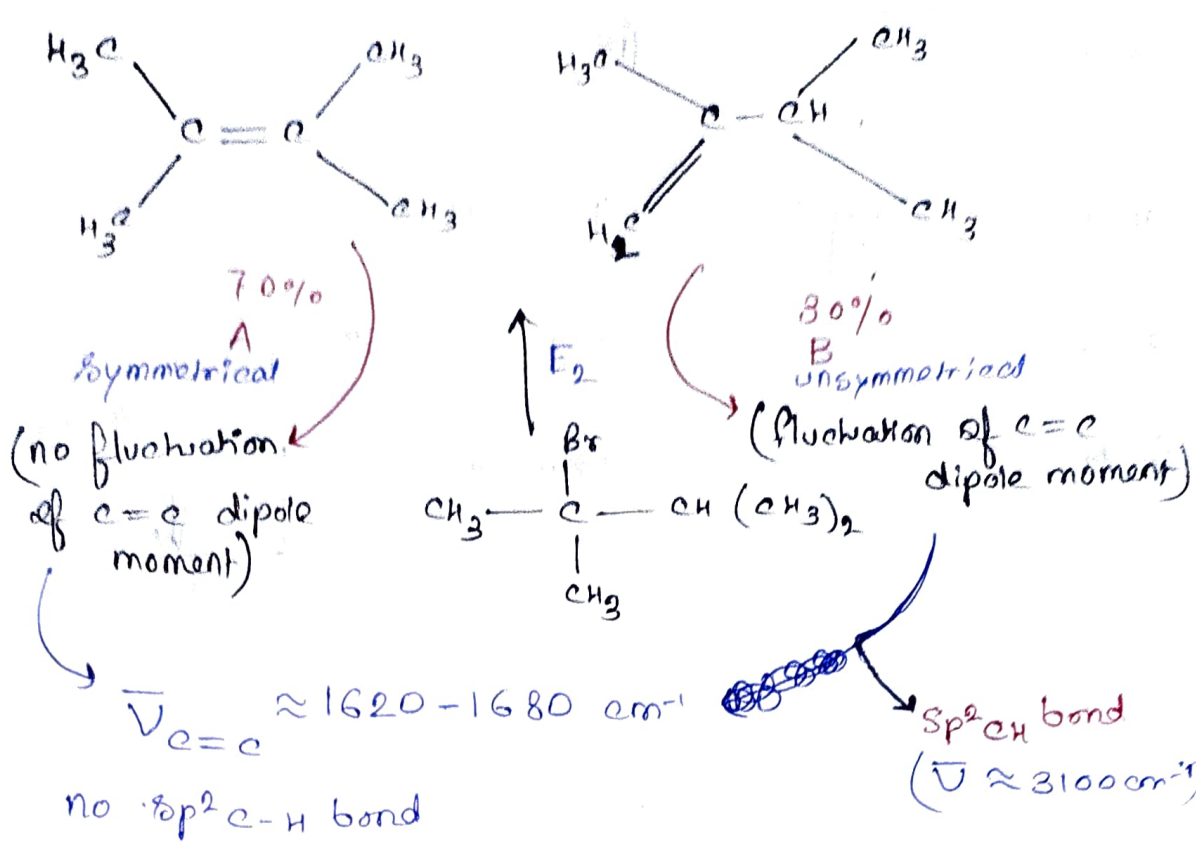 H3C CH3
C = C
H3C CH3
H3C CH3
C - CH
H2C CH3
70%
A
Symmetrical
(no fluctuation
of c=c dipole
moment)
E2
Br
CH3 — C — CH (CH3)2
CH3
30%
B
unsymmetrical
(fluctuation of c=c
dipole moment)
ν̅ c=c ≈ 1620-1680 cm⁻¹
no sp² C-H bond
Sp² CH bond
(ν̅ ≈ 3100 cm⁻¹)